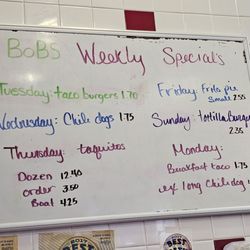 BoBS Weekly Specials
Tuesday: taco burgers 1.70
Wednesday: Chili dogs 1.75
Thursday: taquitos
Dozen 12.40
order 3.50
Boat 4.25
Friday: Frito pie
Small 2.55
Sunday: tortilla burger
2.35
Monday:
Breakfast taco 1.75
long Chili dog
BEST